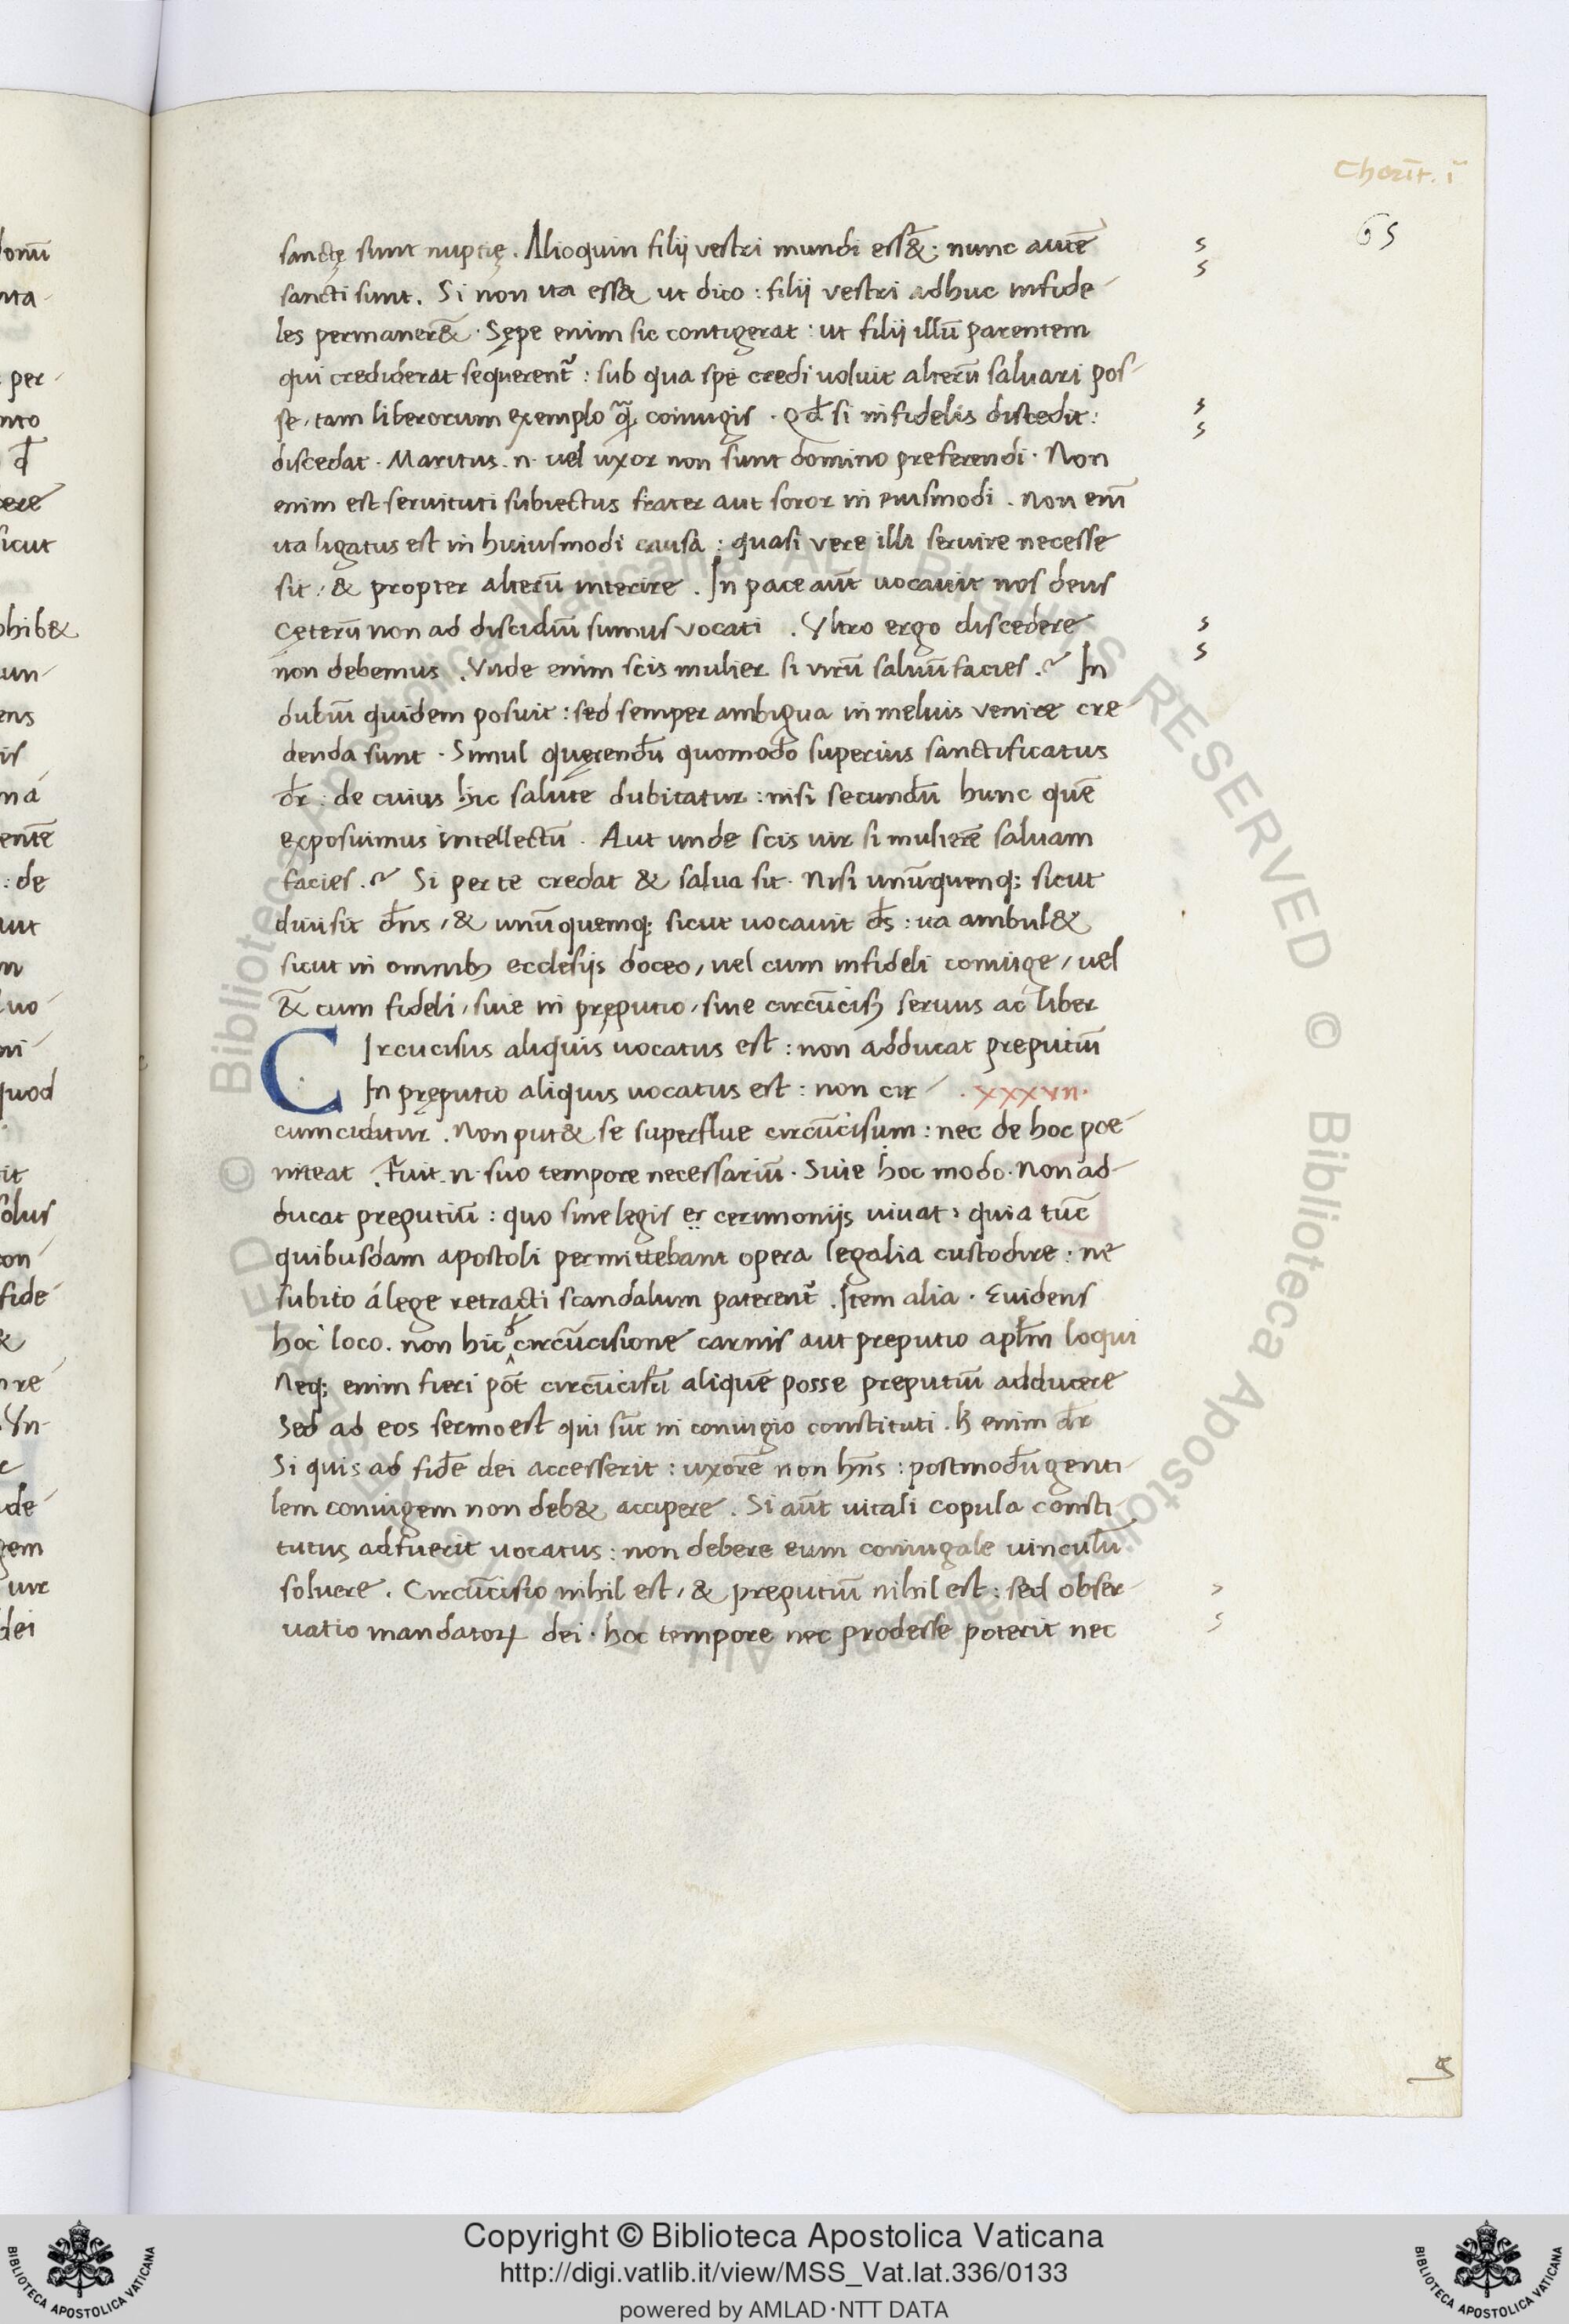 Chorīt. ī
65
sanctę sunt nuptię. Alioquin filij vestri mundi ess&̄: nunc autē
sancti sunt. Si non ita ess& ut dico: filij vestri adhuc infide-
les permaner&̄. Sępe enim sic contigerat: ut filij illū parentem
qui crediderat sequerent᷑: sub qua spe credi uoluit alterū saluari pos-
se, tam liberorum exemplo q̄ꝫ coiugis. Qd̄ si infidelis discedit:
discedat. Maritus .n. uel uxor non sunt domino preferendi. Non
enim est seruituti subiectus frater aut soror in eiusmodi. Non eīm
ita ligatus est in huiusmodi causa: quasi vere illi seruire necesse
sit, & propter alterū interire. In pace aūt uocauit nos deus
Cęterū non ad discidiū sumus vocati. Vltro ergo discedere
non debemus. Vnde enim scis mulier si virū saluū facies.? In
dubiū quidem posuit: sed semper ambigua in melius venire cre
denda sunt. Simul quęrendū quomodo superius sanctificatus
dr̄: de cuius hic salute dubitatur: nisi secundū hunc quē
exposuimus intellectū. Aut unde scis uir si mulierē saluam
facies.? Si per te credat & salua sit. Nisi unūquenqꝫ sicut
diuisit dn̄s, & unūquemqꝫ sicut uocauit ds̄: ita ambul&
sicut in omnibꝫ ecclesijs doceo, uel cum infideli coniuge, uel
&̄ cum fideli, siue in pręputio, siue circūcisꝫ seruus ac liber
CIrcucisus aliquis uocatus est: non adducat preputiū
In pręputio aliquis uocatus est: non cir- .xxxvii.
cumcidatur. Non put& se superflue circūcisum: nec de hoc poe-
niteat. Fuit .n. suo tempore necessariū. Siue hoc modo. Non ad-
ducat preputiū: quo sine legis er cerimonijs uiuat: quia tūc
quibusdam apostoli permittebant opera legalia custodire: ne
subito á lege retracti scandalum paterent᷑. Item alia. Euidens
hoc loco. non hic circūcisione carnis aut preputio apl̄m loqui
Neqꝫ enim fieri pōt circūcisū aliquē posse preputiū adducere
Sed ad eos sermo est qui sūt in coniugio constituti. H̄ enim dr̄
Si quis ad fidē dei accesserit: uxorē non hn̄s: postmodū genti-
lem coniugem non deb& accipere. Si aūt uitali copula consti-
tutus adfuerit uocatus: non debere eum coniugale uinculū
soluere. Circūcisio nihil est, & preputiū nihil est: sed obser-
uatio mandatoꝝ dei. hoc tempore nec prodesse poterit nec
Copyright © Biblioteca Apostolica Vaticana
http://digi.vatlib.it/view/MSS_Vat.lat.336/0133
powered by AMLAD·NTT DATA